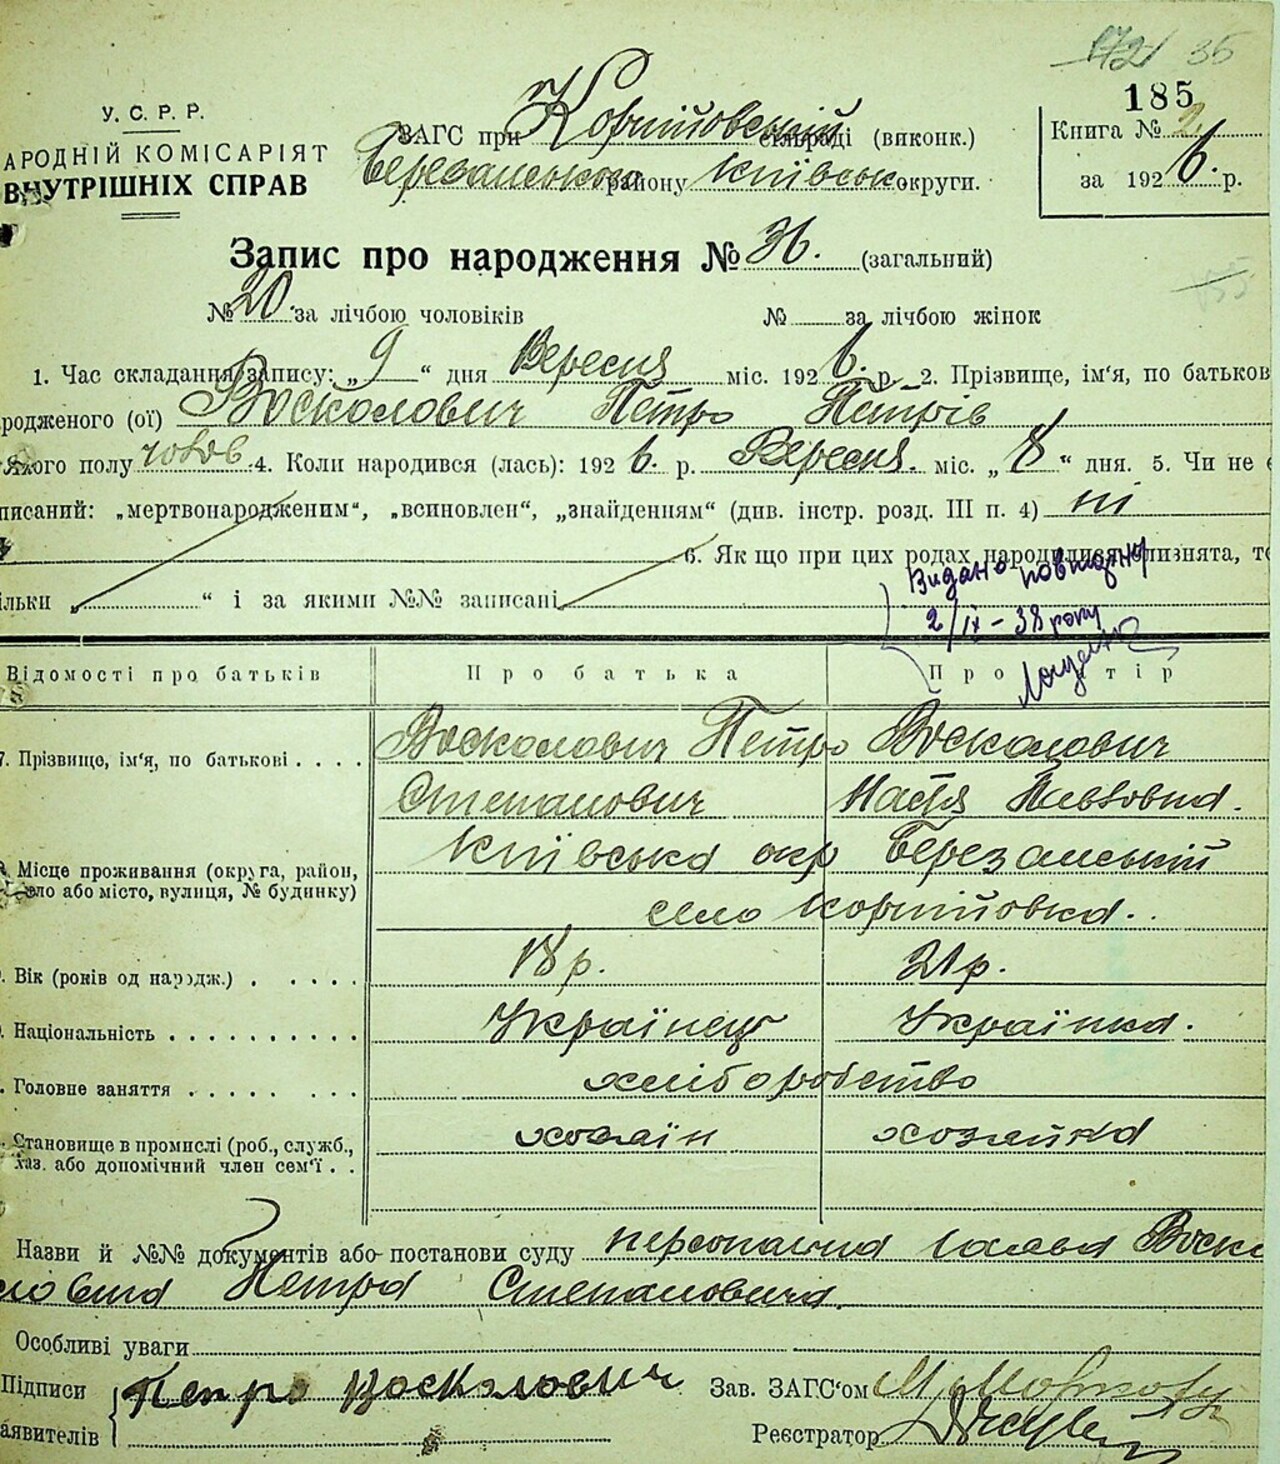 35
185
У. С. Р. Р.
АРОДНІЙ КОМІСАРІЯТ
ВНУТРІШНІХ СПРАВ
ЗАГС при сільраді (виконк.)
району Київськ округи.
Книга № 2
за 1926 р.
Запис про народження № 36. (загальний)
№ 20. за лічбою чоловіків № за лічбою жінок
1. Час складання запису: „9“ дня Вересня міс. 1926. р. 2. Прізвище, ім'я, по батьков
родженого (ої) Восколович Петро Петрів
Якого полу чолов. 4. Коли народився (лась): 1926. р. Вересня. міс. „8“ дня. 5. Чи не є
писаний: „мертвонародженим“, „всиновлен“, „знайденням“ (див. інстр. розд. III п. 4) ні
6. Як що при цих родах народилися близнята, то
ільки „ “ і за якими №№ записані
Видано
2/ІХ - 38 року
Відомості про батьків Про батька Про тір
7. Прізвище, ім'я, по батькові . . . . Восколович Петро Восколович
Степанович Настя Павловна.
Місце проживання (округа, район, Київська окр Березанський
село або місто, вулиця, № будинку) село Корніївка..
Вік (років од народж.) . . . . . 18 р. 21 р.
Національність . . . . . . . . . . Українец Українка.
Головне заняття . . . . . . . . хліборобство
Становище в промислі (роб., служб., хозаїн хозайка
хаз. або допомічний член сем'ї . .
Назви й №№ документів або постанови суду персональна заява Воско
ловича Петра Степановича.
Особливі уваги
Підписи Петро Восколович Зав. ЗАГС'ом
аявителів Реєстратор